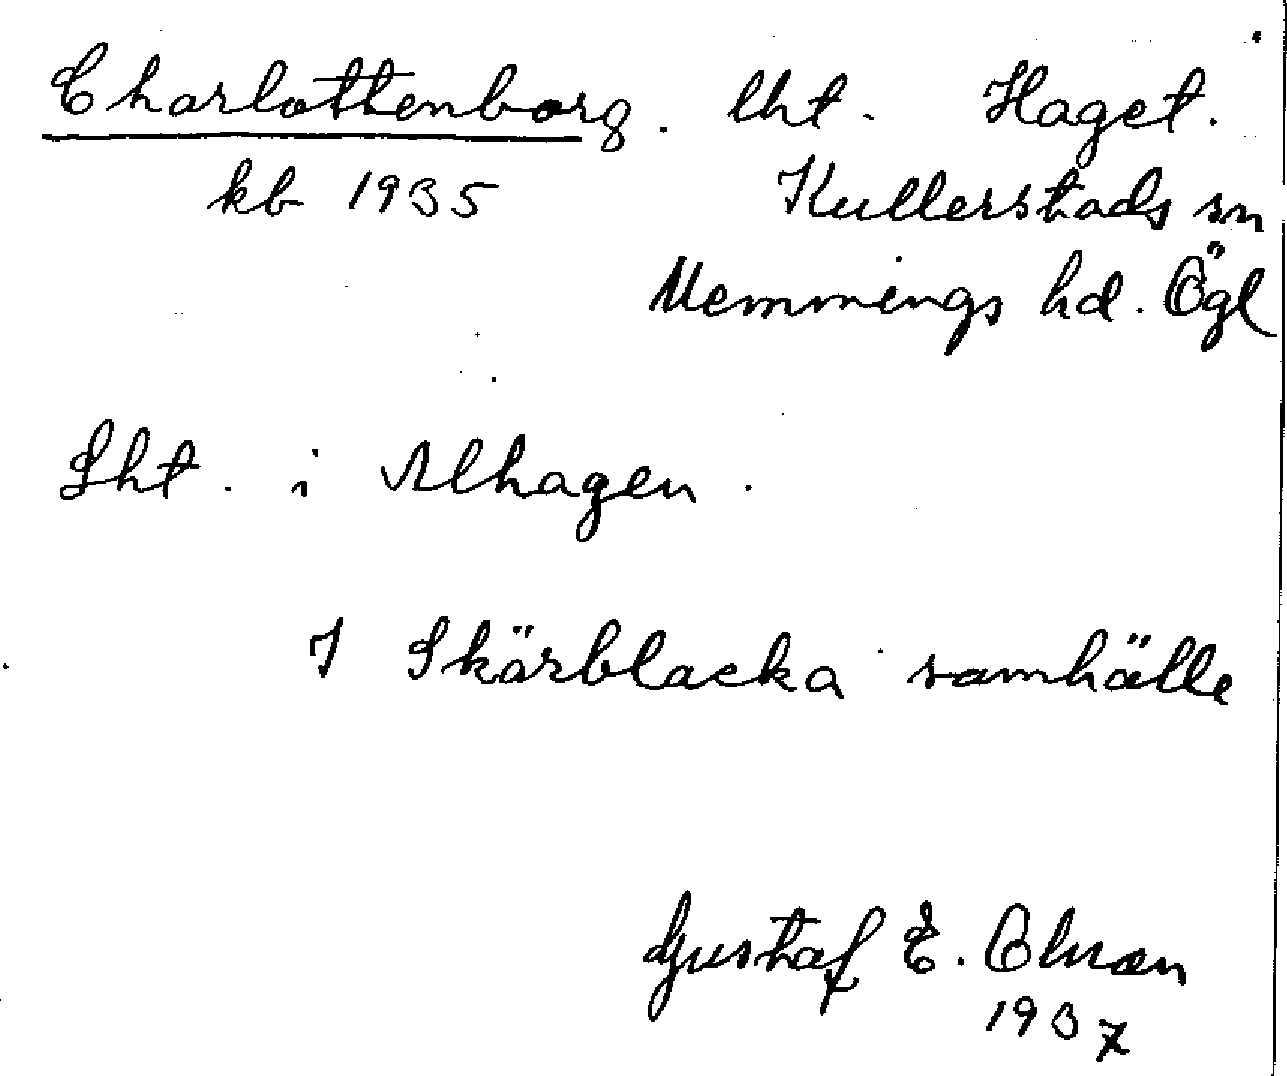 Charlottenborg. lht. Haget.
kb 1935 Kullerstads sn
Memmings hd. Ögl
Lht. i Alhagen.
I Skärblacka samhälle
Gustaf E.
1937